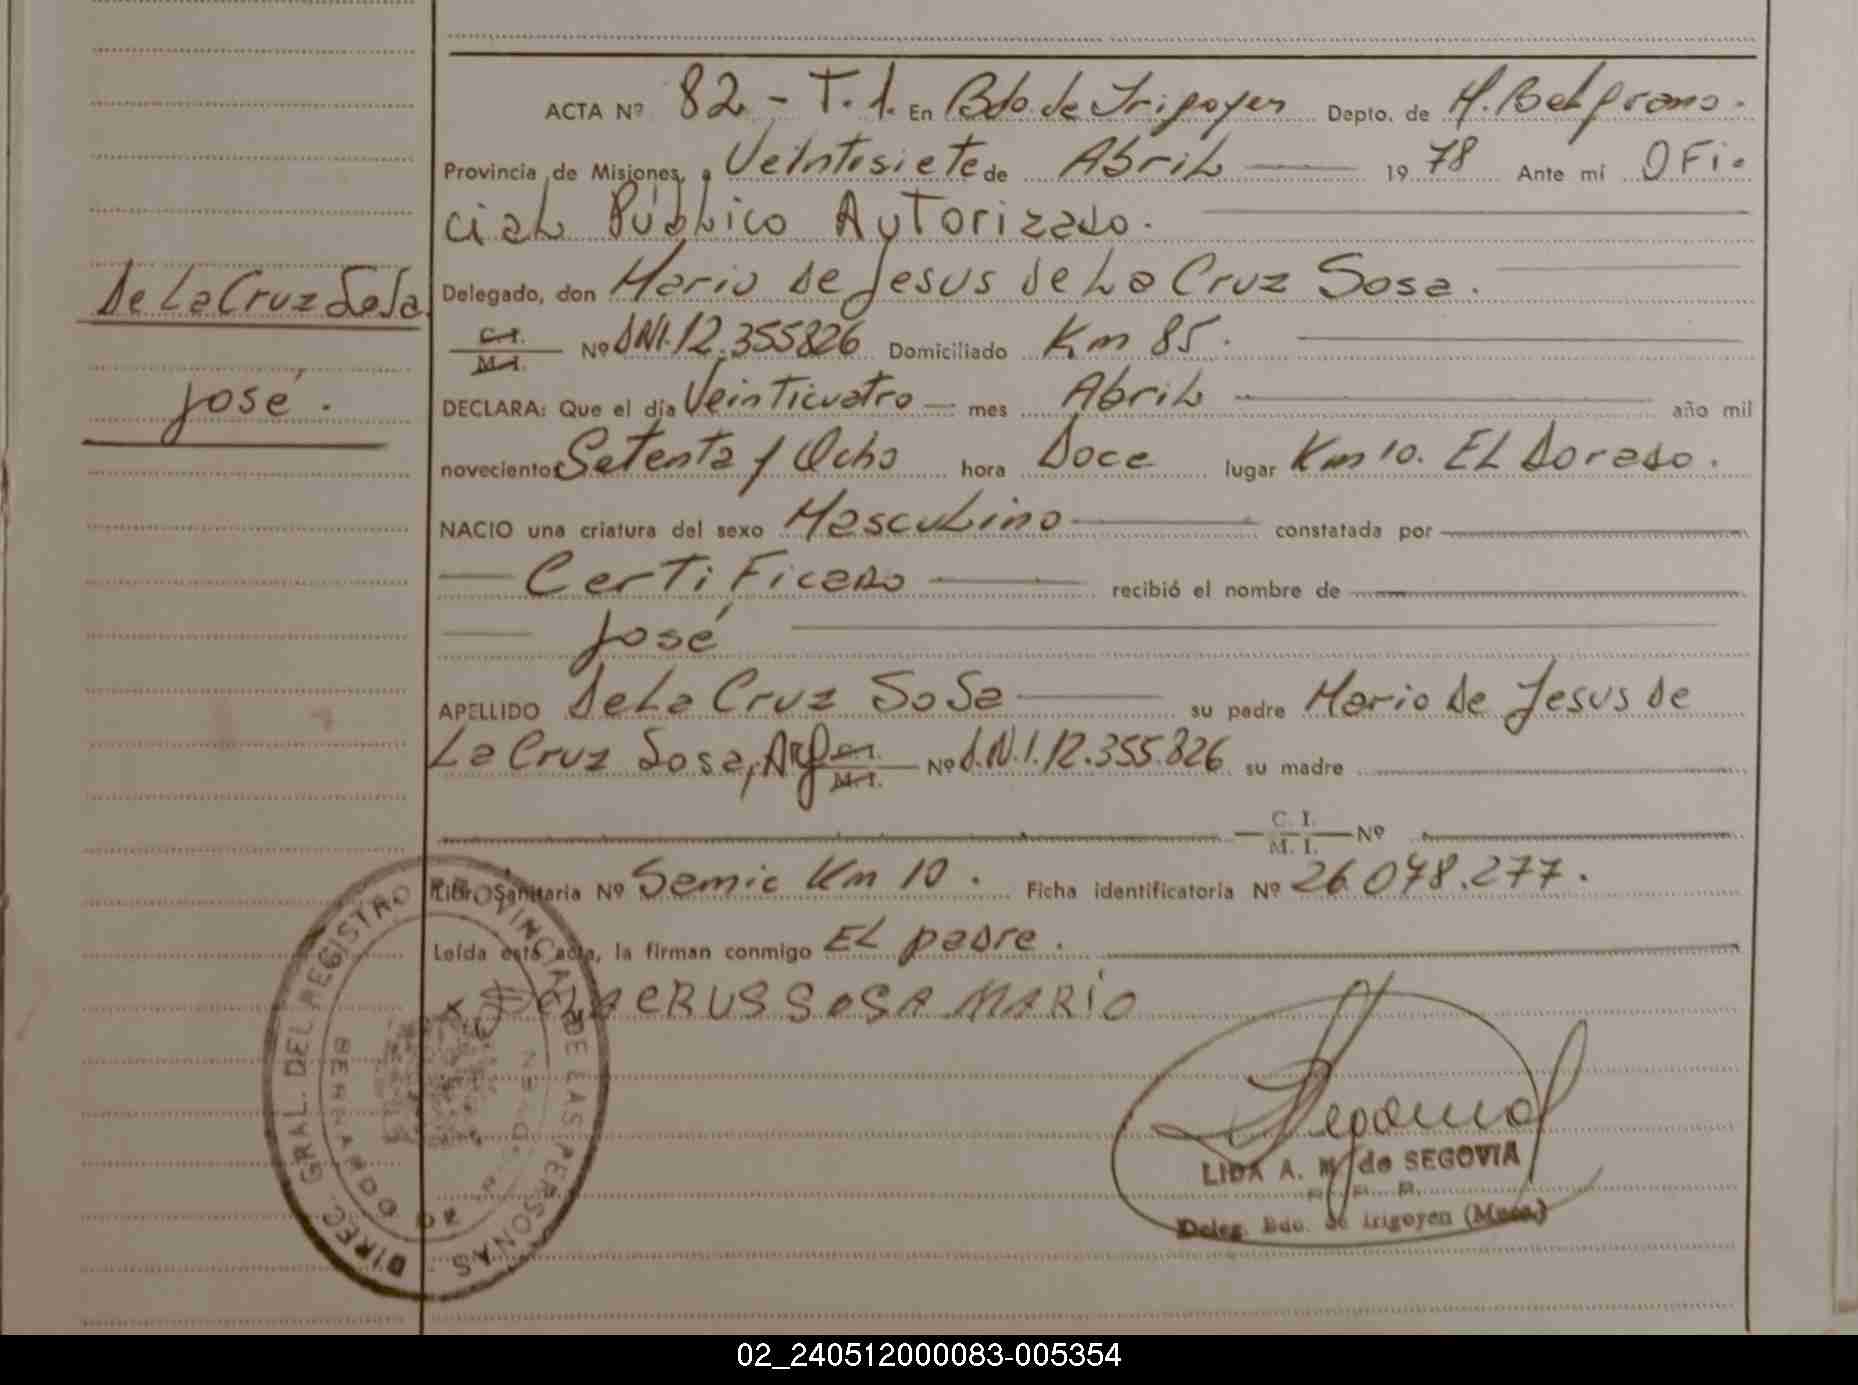 ACTA Nº 82 - T. 1. En Bdo. de Irigoyen Depto. de M. Belgrano.
Provincia de Misiones, a Veintisiete de Abril 1978 Ante mí OFi-
cial Público Autorizado.
De La Cruz Sosa
Delegado, don Mario de Jesus de La Cruz Sosa.
C.I. M.I. Nº DNI. 12.355826 Domiciliado Km 85.
José.
DECLARA: Que el día Veinticuatro mes Abril año mil
novecientos Setenta y Ocho hora Doce lugar Km 10. EL Dorado.
NACIO una criatura del sexo Masculino constatada por
Certificado recibió el nombre de
José
APELLIDO De La Cruz Sosa su padre Mario De Jesus de
La Cruz Sosa, Arg. C.I. M.I. Nº D.N.I. 12.355.826 su madre
C. I. M. I. Nº
Libro Sanitaria Nº Semic Km 10. Ficha identificatoria Nº 26.048.277.
Leída esta acta, la firman conmigo EL padre.
x DE LA CRUS SOSA MARIO
DIREC. GRAL. DEL REGISTRO PROVINCIAL DE LAS PERSONAS
BERNARDO DE
LIDA A. M. de SEGOVIA
Deleg. Bdo. de Irigoyen (Mnes.)
02_240512000083-005354